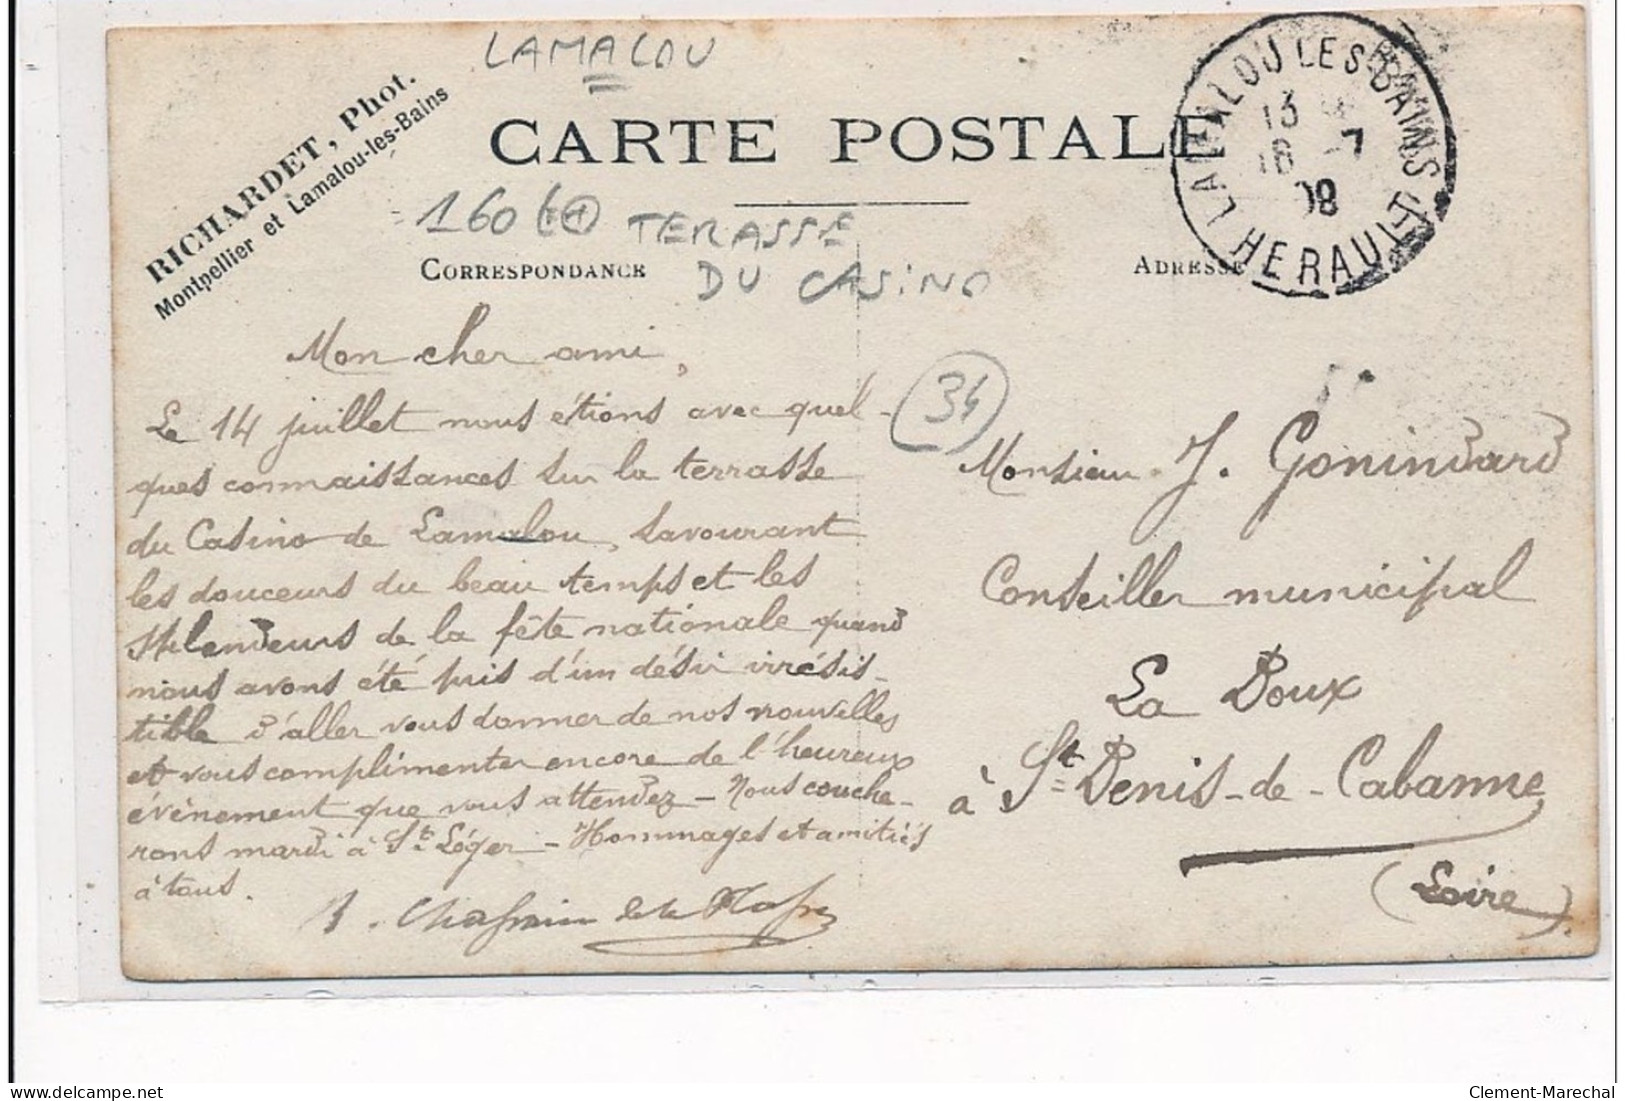 LAMALOU
RICHARDET, Phot.
Montpellier et Lamalou-les-Bains
CARTE POSTALE
LAMALOU LES BAINS
13
18 -7
08
HERAULT
160 TERASSE
DU CASINO
CORRESPONDANCE
ADRESSE
34
Mon cher ami,
Le 14 juillet nous étions avec quel-
ques connaissances sur la terrasse
du Casino de Lamalou, savourant
les douceurs du beau temps et les
splendeurs de la fête nationale quand
nous avons été pris d'un désir irrésis-
tible d'aller vous donner de nos nouvelles
et vous complimenter encore de l'heureux
évènement que vous attendez - Nous couche-
rons mardi à St. Léger - Hommages et amitiés
à tous.
Monsieur J. Gonindard
Conseiller municipal
La Doux
à St Denis-de-Cabanne
(Loire).
Clement-Marechal